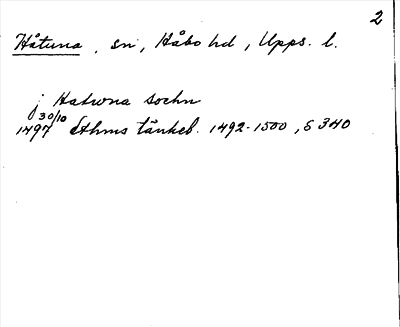 2
Håtuna, sn, Håbo hd, Upps. l.
j Hatwna sochn
30/10
1497 Sthms tänkeb. 1492-1500, S 340